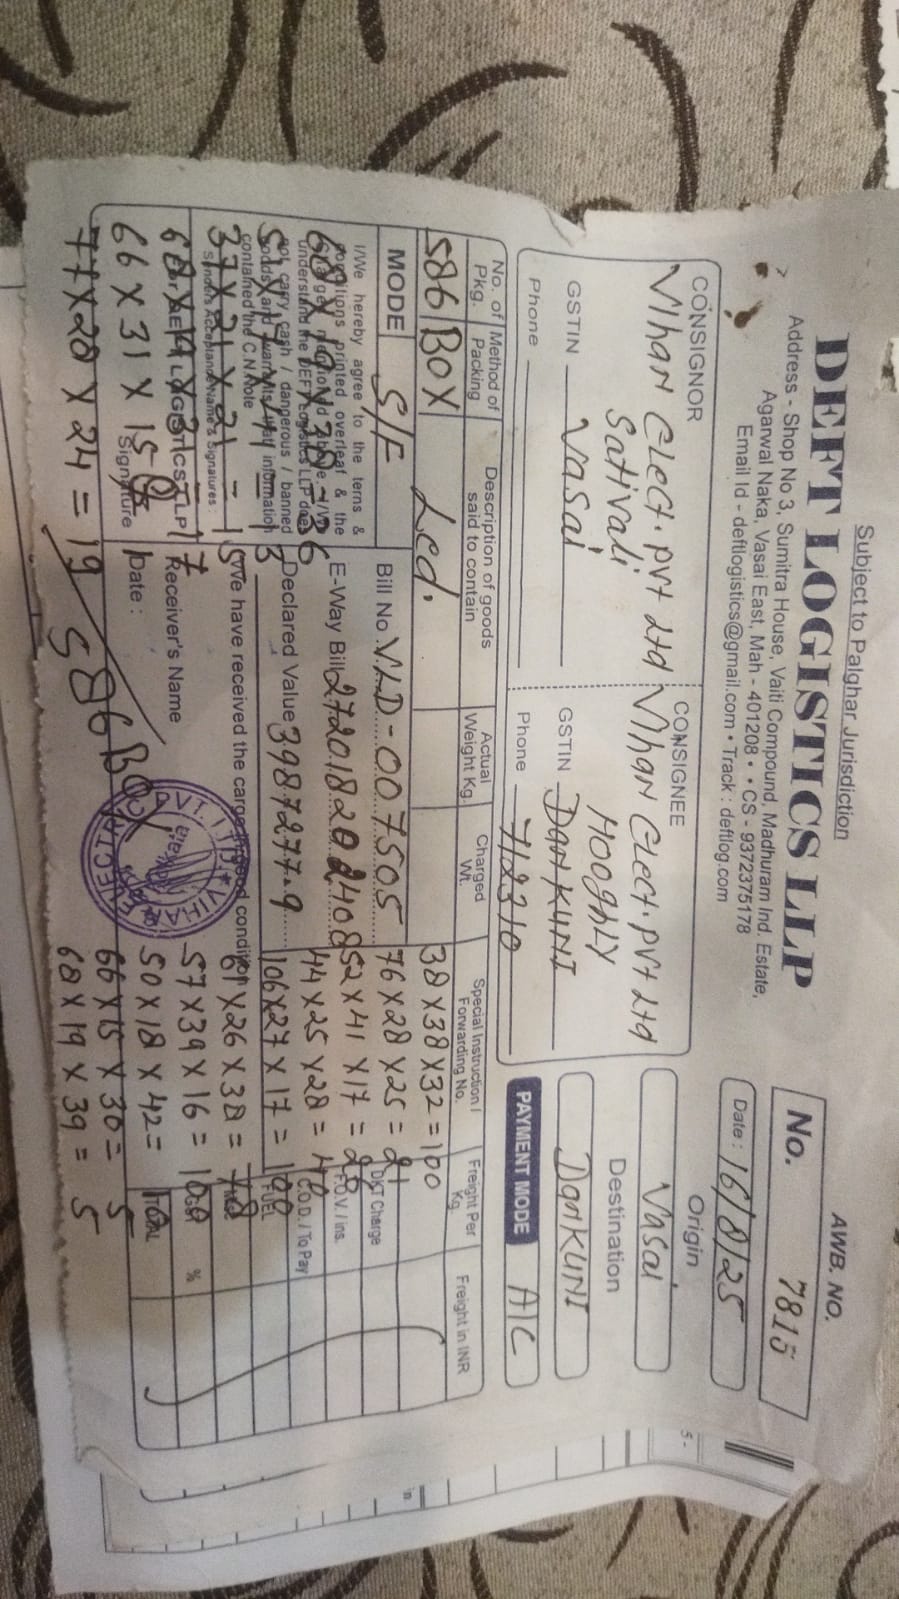 Subject to Palghar Jurisdiction
DEFT LOGISTICS LLP
Address - Shop No 3, Sumitra House, Vaiti Compound, Madhuram Ind. Estate,
Agarwal Naka, Vasai East, Mah - 401208 • • CS - 9372375178
Email Id - deftlogistics@gmail.com • Track : deftlog.com
AWB. NO.
No. 7815
Date : 16/8/25
CONSIGNOR
Vihan Elect. pvt Ltd
Sativali
Vasai
GSTIN
Phone
CONSIGNEE
Vihan Elect. pvt Ltd
Hooghly
GSTIN DanKUNI
Phone 712310
Origin
Vasai
Destination
DanKUNI
PAYMENT MODE A/C
No. of Pkg.
Method of Packing
Description of goods said to contain
Actual Weight Kg.
Charged Wt.
Special Instruction / Forwarding No.
Freight Per Kg.
Freight in INR
586 BOX Led.
MODE S/F
Bill No. VLD-007505
E-Way Bill 272018202408
Declared Value 3987277.9
I/We hereby agree to the terms &
conditions printed overleaf & the
understand the DEFT Logistics LLP does
not carry cash / dangerous / banned
contained the CN Note
Senders Acceptance Name & Signatures :
Signature
We have received the cargo in good condition
Receiver's Name
Date :
38 X 38 X 32 = 100
76 X 28 X 25 =
52 X 41 X 17 =
44 X 25 X 28 =
106 X 27 X 17 = 100
X 26 X 38 =
57 X 39 X 16 =
50 X 18 X 42 =
66 X 15 X 30 = 5
68 X 19 X 39 = 5
DKT Charge
F.O.V. / ins.
C.O.D. / To Pay
FUEL
%
TOTAL
37 X 21 X 21 =
66 X 31 X 15
77 X 28 X 24 = 19
586 BOX